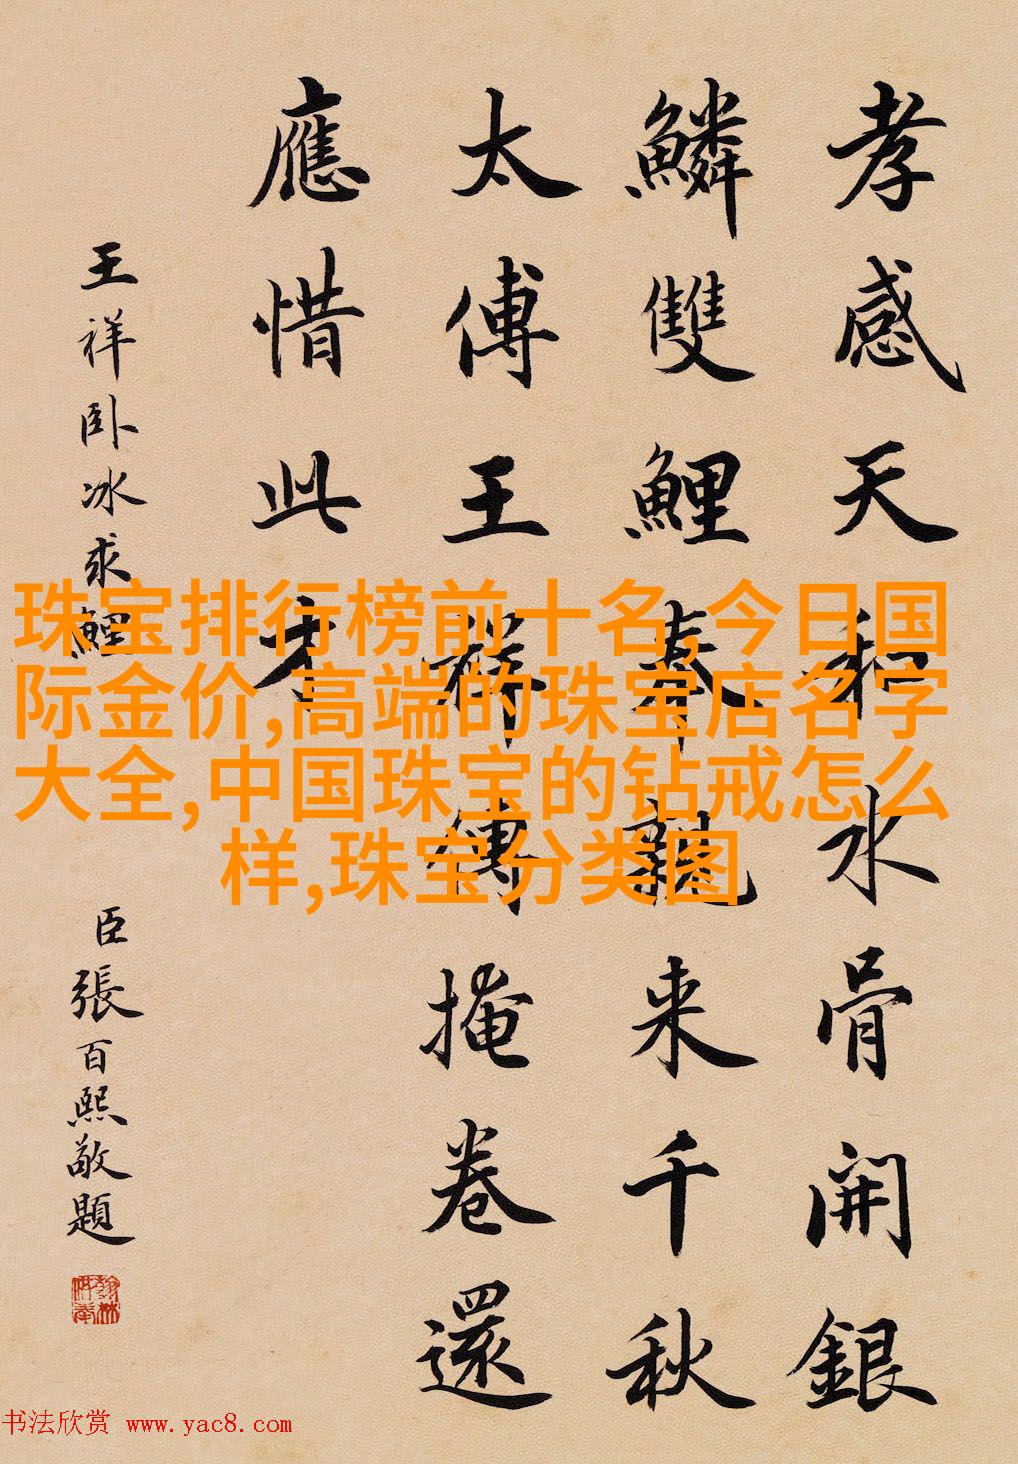 孝感天和水骨開銀
鱗雙鯉奉親来千秋
太傅王祥傳掩卷還
應惜此才
王祥卧冰求鯉
臣張百熙敬題
珠宝排行榜前十名,今日国
际金价,高端的珠宝店名字
大全,中国珠宝的钻戒怎么
样,珠宝分类图
书法欣赏 www.yac8.com